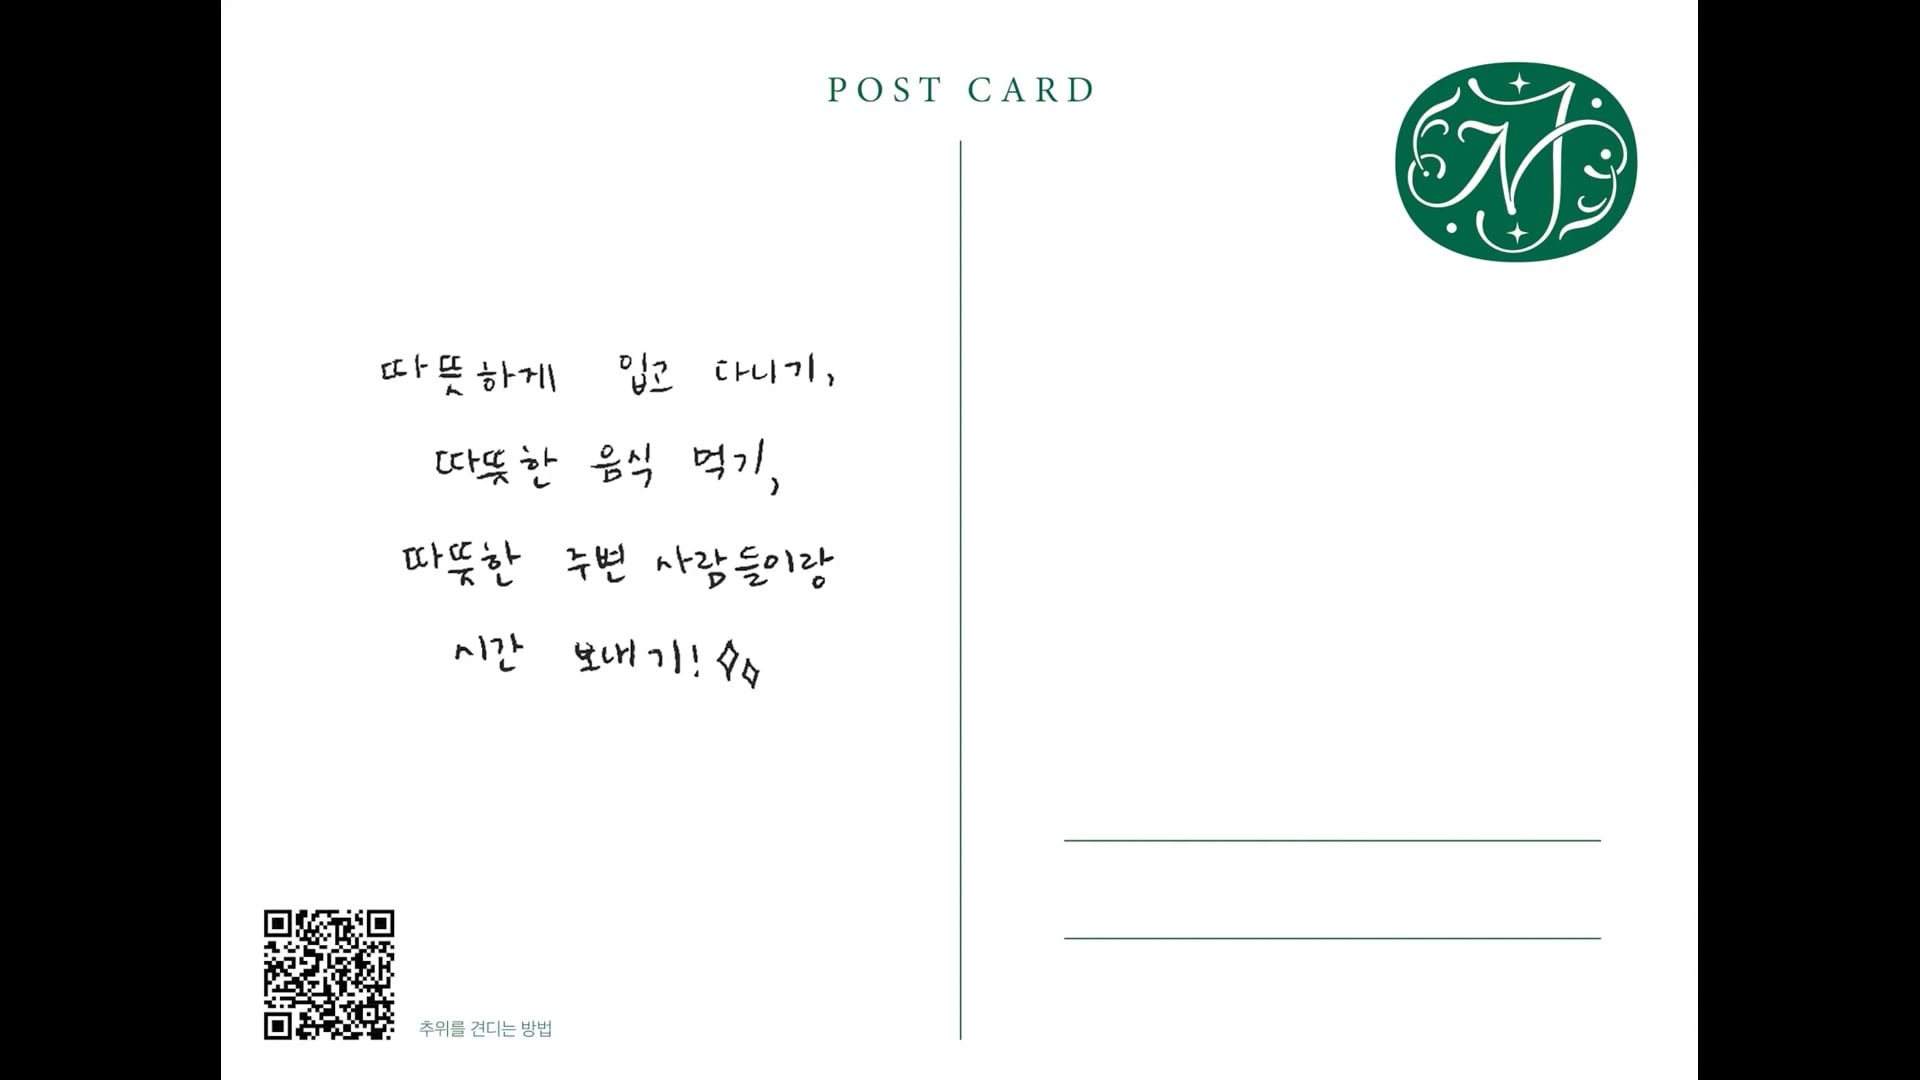 POST CARD
따뜻하게 입고 다니기,
따뜻한 음식 먹기,
따뜻한 주변 사람들이랑
시간 보내기!
추위를 견디는 방법